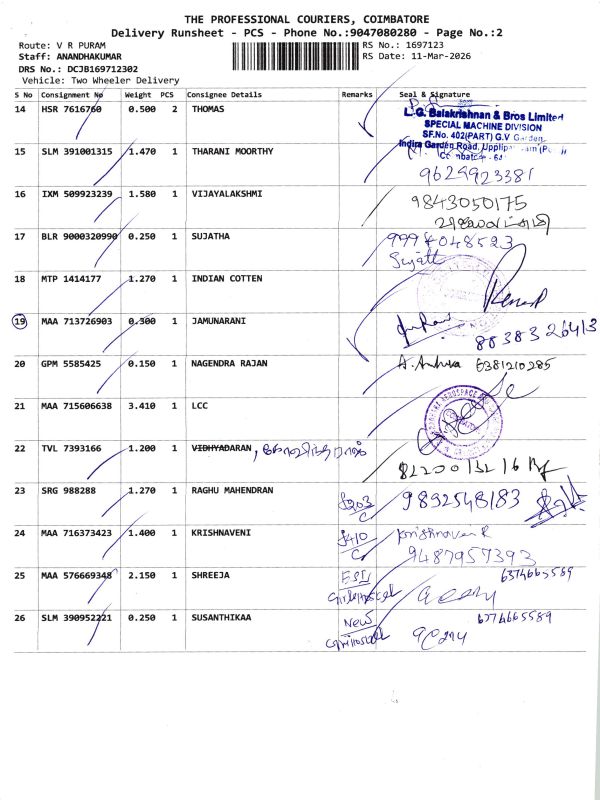 THE PROFESSIONAL COURIERS, COIMBATORE
Delivery Runsheet - PCS - Phone No.:9047080280 - Page No.:2
Route: V R PURAM
RS No.: 1697123
Staff: ANANDHAKUMAR
RS Date: 11-Mar-2026
DRS No.: DCJB169712302
Vehicle: Two Wheeler Delivery
S No Consignment No Weight PCS Consignee Details Remarks Seal & Signature
14 HSR 7616760 0.500 2 THOMAS
L.G. Balakrishnan & Bros Limited
SPECIAL MACHINE DIVISION
SF.No. 402(PART) G.V Garden,
Indira Garden Road, Uppli
15 SLM 391001315 1.470 1 THARANI MOORTHY
9629923381
16 IXM 509923239 1.580 1 VIJAYALAKSHMI
9843050175
17 BLR 9000320990 0.250 1 SUJATHA
9994048523
18 MTP 1414177 1.270 1 INDIAN COTTEN
19 MAA 713726903 0.300 1 JAMUNARANI
8838326413
20 GPM 5585425 0.150 1 NAGENDRA RAJAN
6381210285
21 MAA 715606638 3.410 1 LCC
22 TVL 7393166 1.200 1 VIDHYADARAN,
23 SRG 988288 1.270 1 RAGHU MAHENDRAN
9892548183
24 MAA 716373423 1.400 1 KRISHNAVENI
9487957393
25 MAA 576669348 2.150 1 SHREEJA
6374665589
26 SLM 390952221 0.250 1 SUSANTHIKAA New
6374665589